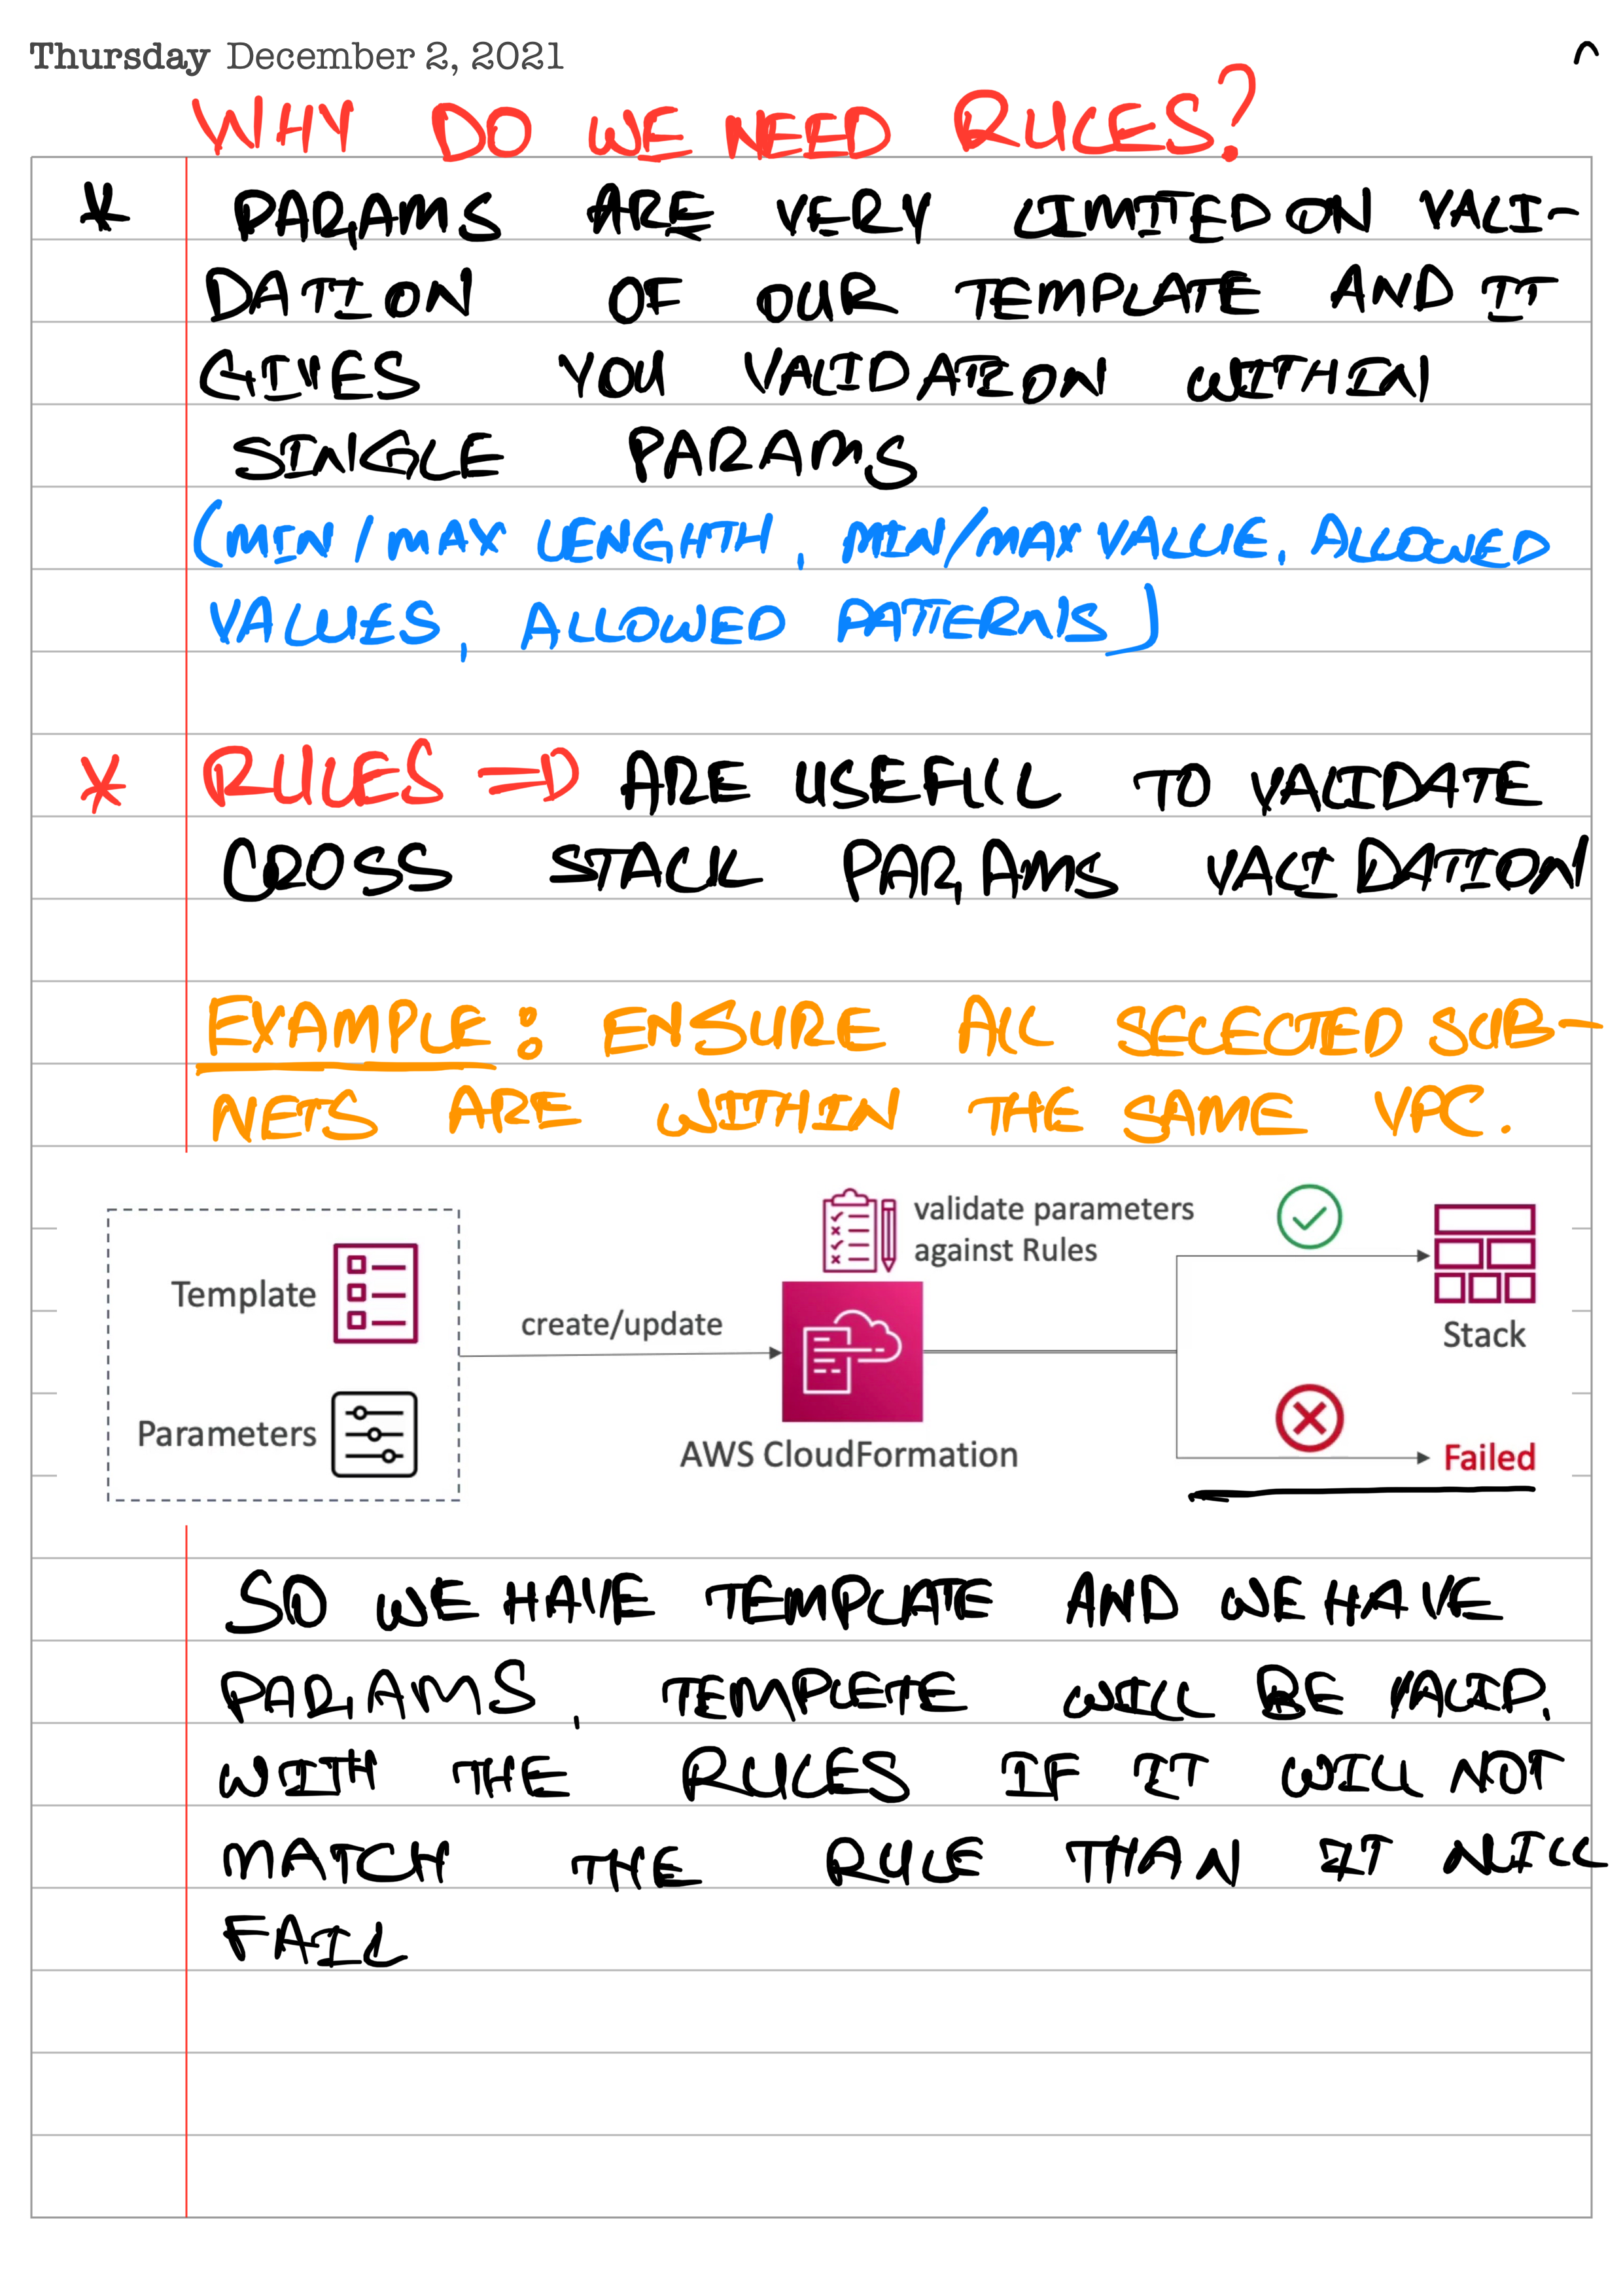 Thursday December 2, 2021
WHY DO WE NEED RULES?
* PARAMS ARE VERY LIMITED ON VALI-
DATION OF OUR TEMPLATE AND IT
GIVES YOU VALIDATION WITHIN
SINGLE PARAMS
(MIN/MAX LENGHTH, MIN/MAX VALUE, ALLOWED
VALUES, ALLOWED PATTERNS)
* RULES => ARE USEFUL TO VALIDATE
CROSS STACK PARAMS VALIDATION
EXAMPLE: ENSURE ALL SELECTED SUB-
NETS ARE WITHIN THE SAME VPC.
validate parameters
against Rules
Template
create/update
Stack
Parameters
AWS CloudFormation
Failed
SO WE HAVE TEMPLATE AND WE HAVE
PARAMS, TEMPLETE WILL BE VALID.
WITH THE RULES IF IT WILL NOT
MATCH THE RULE THAN IT WILL
FAIL